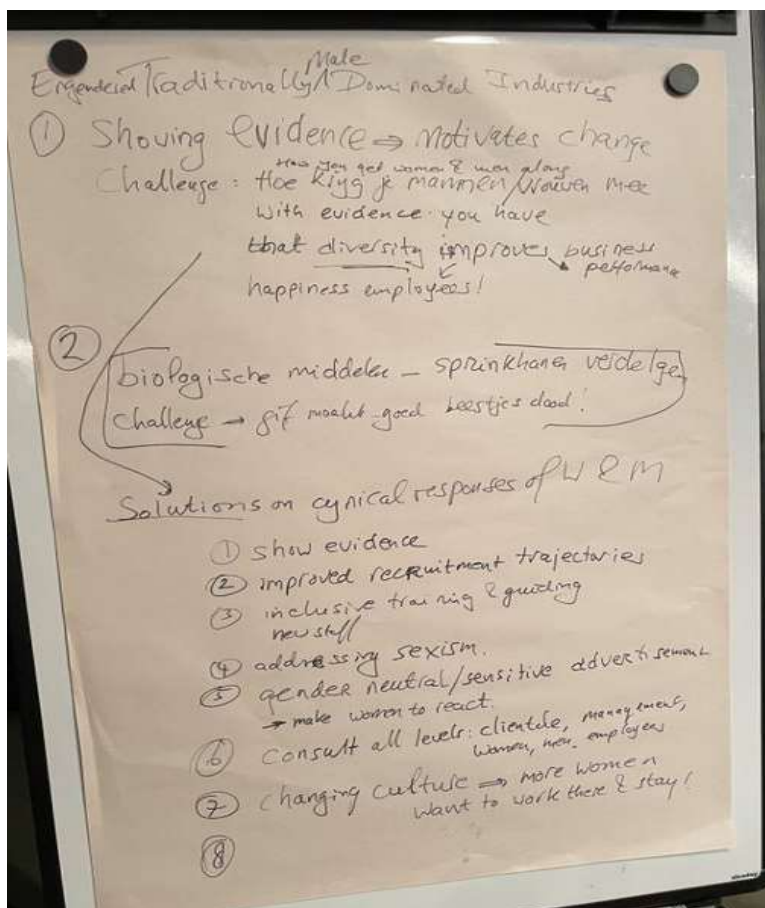 Male
Engendered Traditionally Dominated Industries
① Showing evidence ⇒ motivates change
How you get women & men along
Challenge: Hoe krijg je mannen/vrouwen mee
with evidence you have
that diversity improves business
performance
happiness employees!
②
biologische middelen - sprinkhanen verdelgen
challenge → gif maakt goed beestjes dood!
Solutions on cynical responses of W & M
① show evidence
② improved recruitment trajectories
③ inclusive training & guiding
new staff
④ addressing sexism.
⑤ gender neutral/sensitive advertisement
→ make women to react.
⑥ consult all levels: clientele, management,
women, men, employees
⑦ changing culture ⇒ more women
want to work there & stay!
⑧